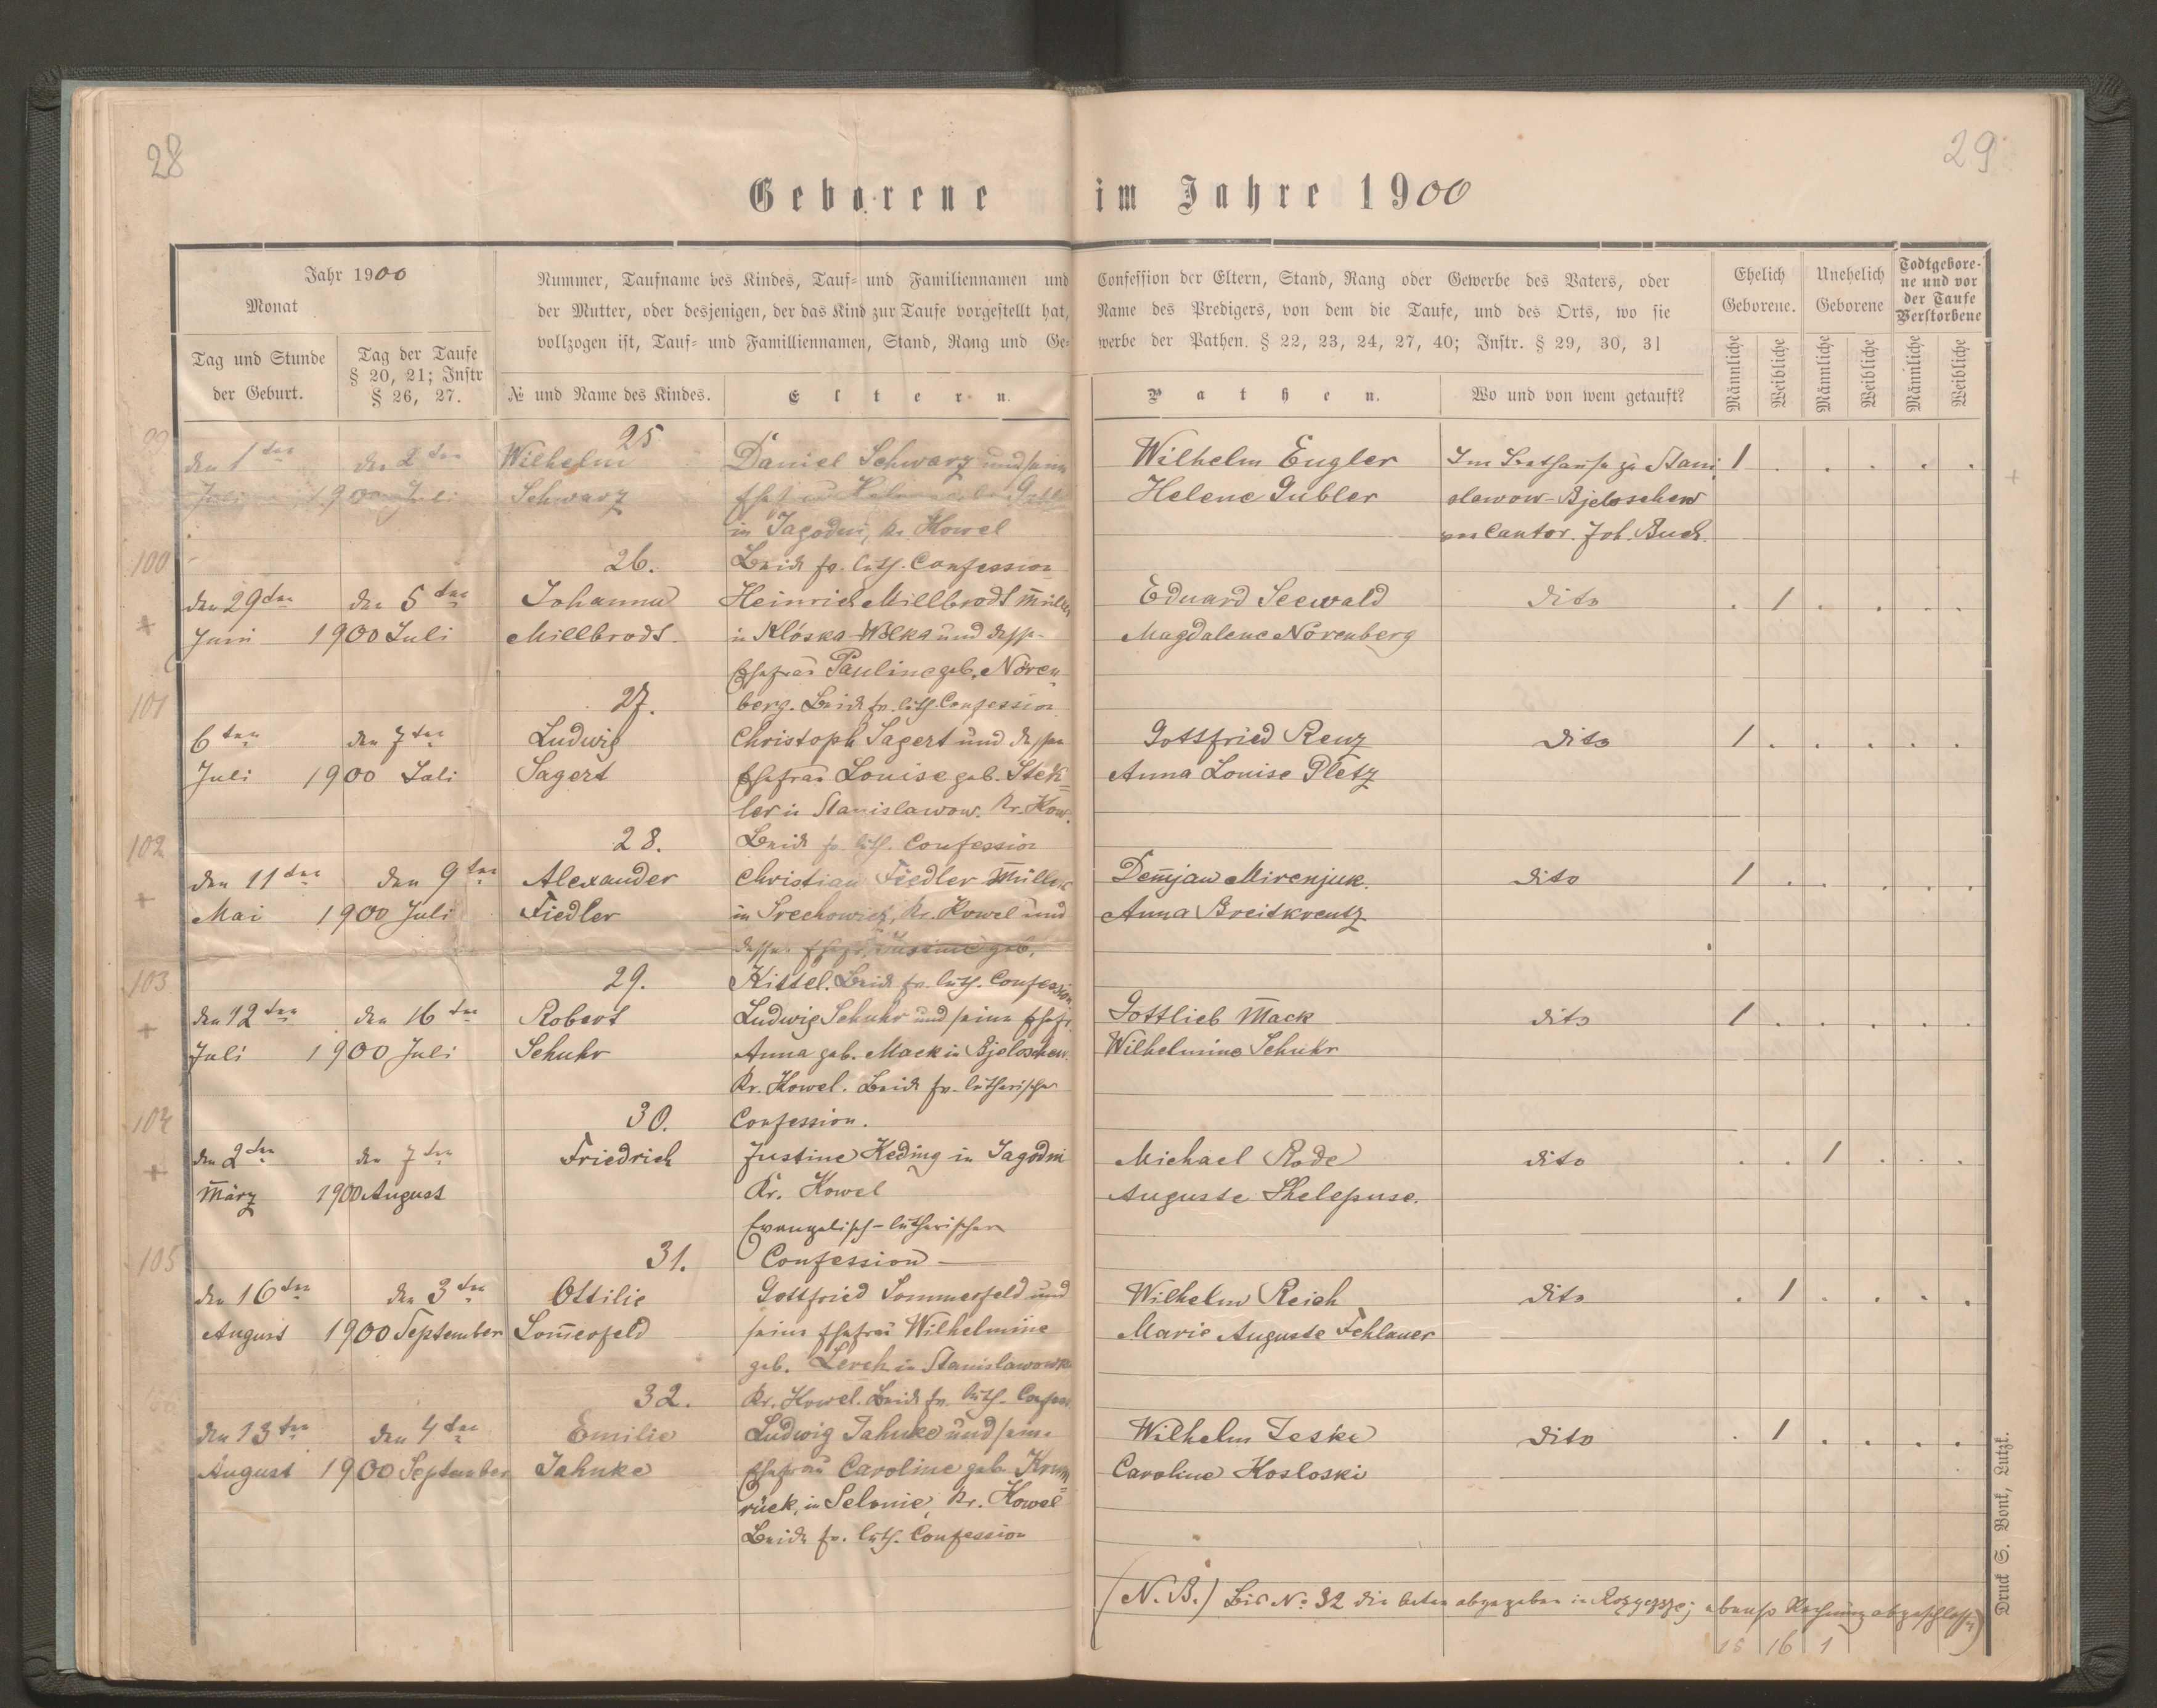 28
29
Geborene im Jahre 1900
Jahr 1900
Monat
Tag und Stunde
der Geburt.
Tag der Taufe
§ 20, 21; Instr
§ 26, 27.
Nummer, Taufname des Kindes, Tauf- und Familiennamen und
der Mutter, oder desjenigen, der das Kind zur Taufe vorgestellt hat,
vollzogen ist, Tauf- und Familliennamen, Stand, Rang und Ge-
№ und Name des Kindes.
Eltern.
Confession der Eltern, Stand, Rang oder Gewerbe des Vaters, oder
Name des Predigers, von dem die Taufe, und des Orts, wo sie
werbe der Pathen. § 22, 23, 24, 27, 40; Instr. § 29, 30, 31
Pathen.
Wo und von wem getauft?
Ehelich
Geborene.
Unehelich
Geborene
Todtgebore-
ne und vor
der Taufe
Verstorbene
Männliche
Weibliche
Männliche
Weibliche
Männliche
Weibliche
99
25
den 1ten den 2ten Wilhelm Daniel Schwarz und seine Wilhelm Engler Im Bethause zu Stani 1 . . . . .
Juli 1900 Juli Schwarz Ehefrau Helene Gubler slawow-Bjeloschew
in Jagodni, Kr. Kowel von Cantor. Joh. Buch.
100 26. Beide ev. luth. Confession
den 29ten den 5ten Johanna Heinrich Millbrodt Müller Eduard Seewald dito . 1 . . . .
Juni 1900 Juli Millbrodt. in Klóska-Wolka und dessen Magdalene Nörenberg
Ehefrau Pauline geb. Nören-
101 27. berg. Beide ev. luth. Confession
6ten den 7ten Ludwig Christoph Sagert und dessen Gottfried Renz dito 1 . . . . .
Juli 1900 Juli Sagert Ehefrau Louise geb. Steck= Anna Louise Pletz
ler in Stanislawow. Kr. Kow.
102 28. Beide ev. luth. Confession
den 11ten den 9ten Alexander Christian Fiedler Müller Demjan Mirenjuk. dito 1 . . . . .
Mai 1900 Juli Fiedler in Srechowicz, Kr. Kowel und Anna Breitkreutz
dessen Ehefr. geb.
103 29. Kittel. Beide ev. luth. Confession
den 12ten den 16ten Robert Ludwig Schuhr und seine Ehefr. Gottlieb Mack dito 1 . . . . .
Juli 1900 Juli Schuhr Anna geb. Mack in Bjeloschew. Wilhelmine Schuhr
Kr. Kowel. Beide ev. lutherischer
104 30. Confession.
den 2ten den 7ten Friedrich Justine Keding in Jagodni Michael Rode dito . . 1 . . .
März 1900 August Kr. Kowel Auguste Schelepuse.
Evangelisch-lutherischer
105 31. Confession
den 16ten den 3ten Ottilie Gottfried Sommerfeld und Wilhelm Reich dito . 1 . . . .
August 1900 September Som̄erfeld seine Ehefrau Wilhelmine Marie Auguste Fehlauer
geb. Lerch in Stanislawowka
32. Kr. Kowel. Beide ev. luth. Confess
den 13ten den 4ten Emilie Ludwig Jahnke und seine Wilhelm Jeske dito . 1 . . . .
August 1900 September Jahnke Ehefrau Caroline geb. Krum= Caroline Kosloski
rück, in Selonie, Kr. Kowel
Beide ev. luth. Confession
(N.B.) Bis No 32 die Acten abgegeben in Rozyszcze; ebenso Rechnung abgeschlossen)
15 16 1
Druck S. Bonk, Lutzk.